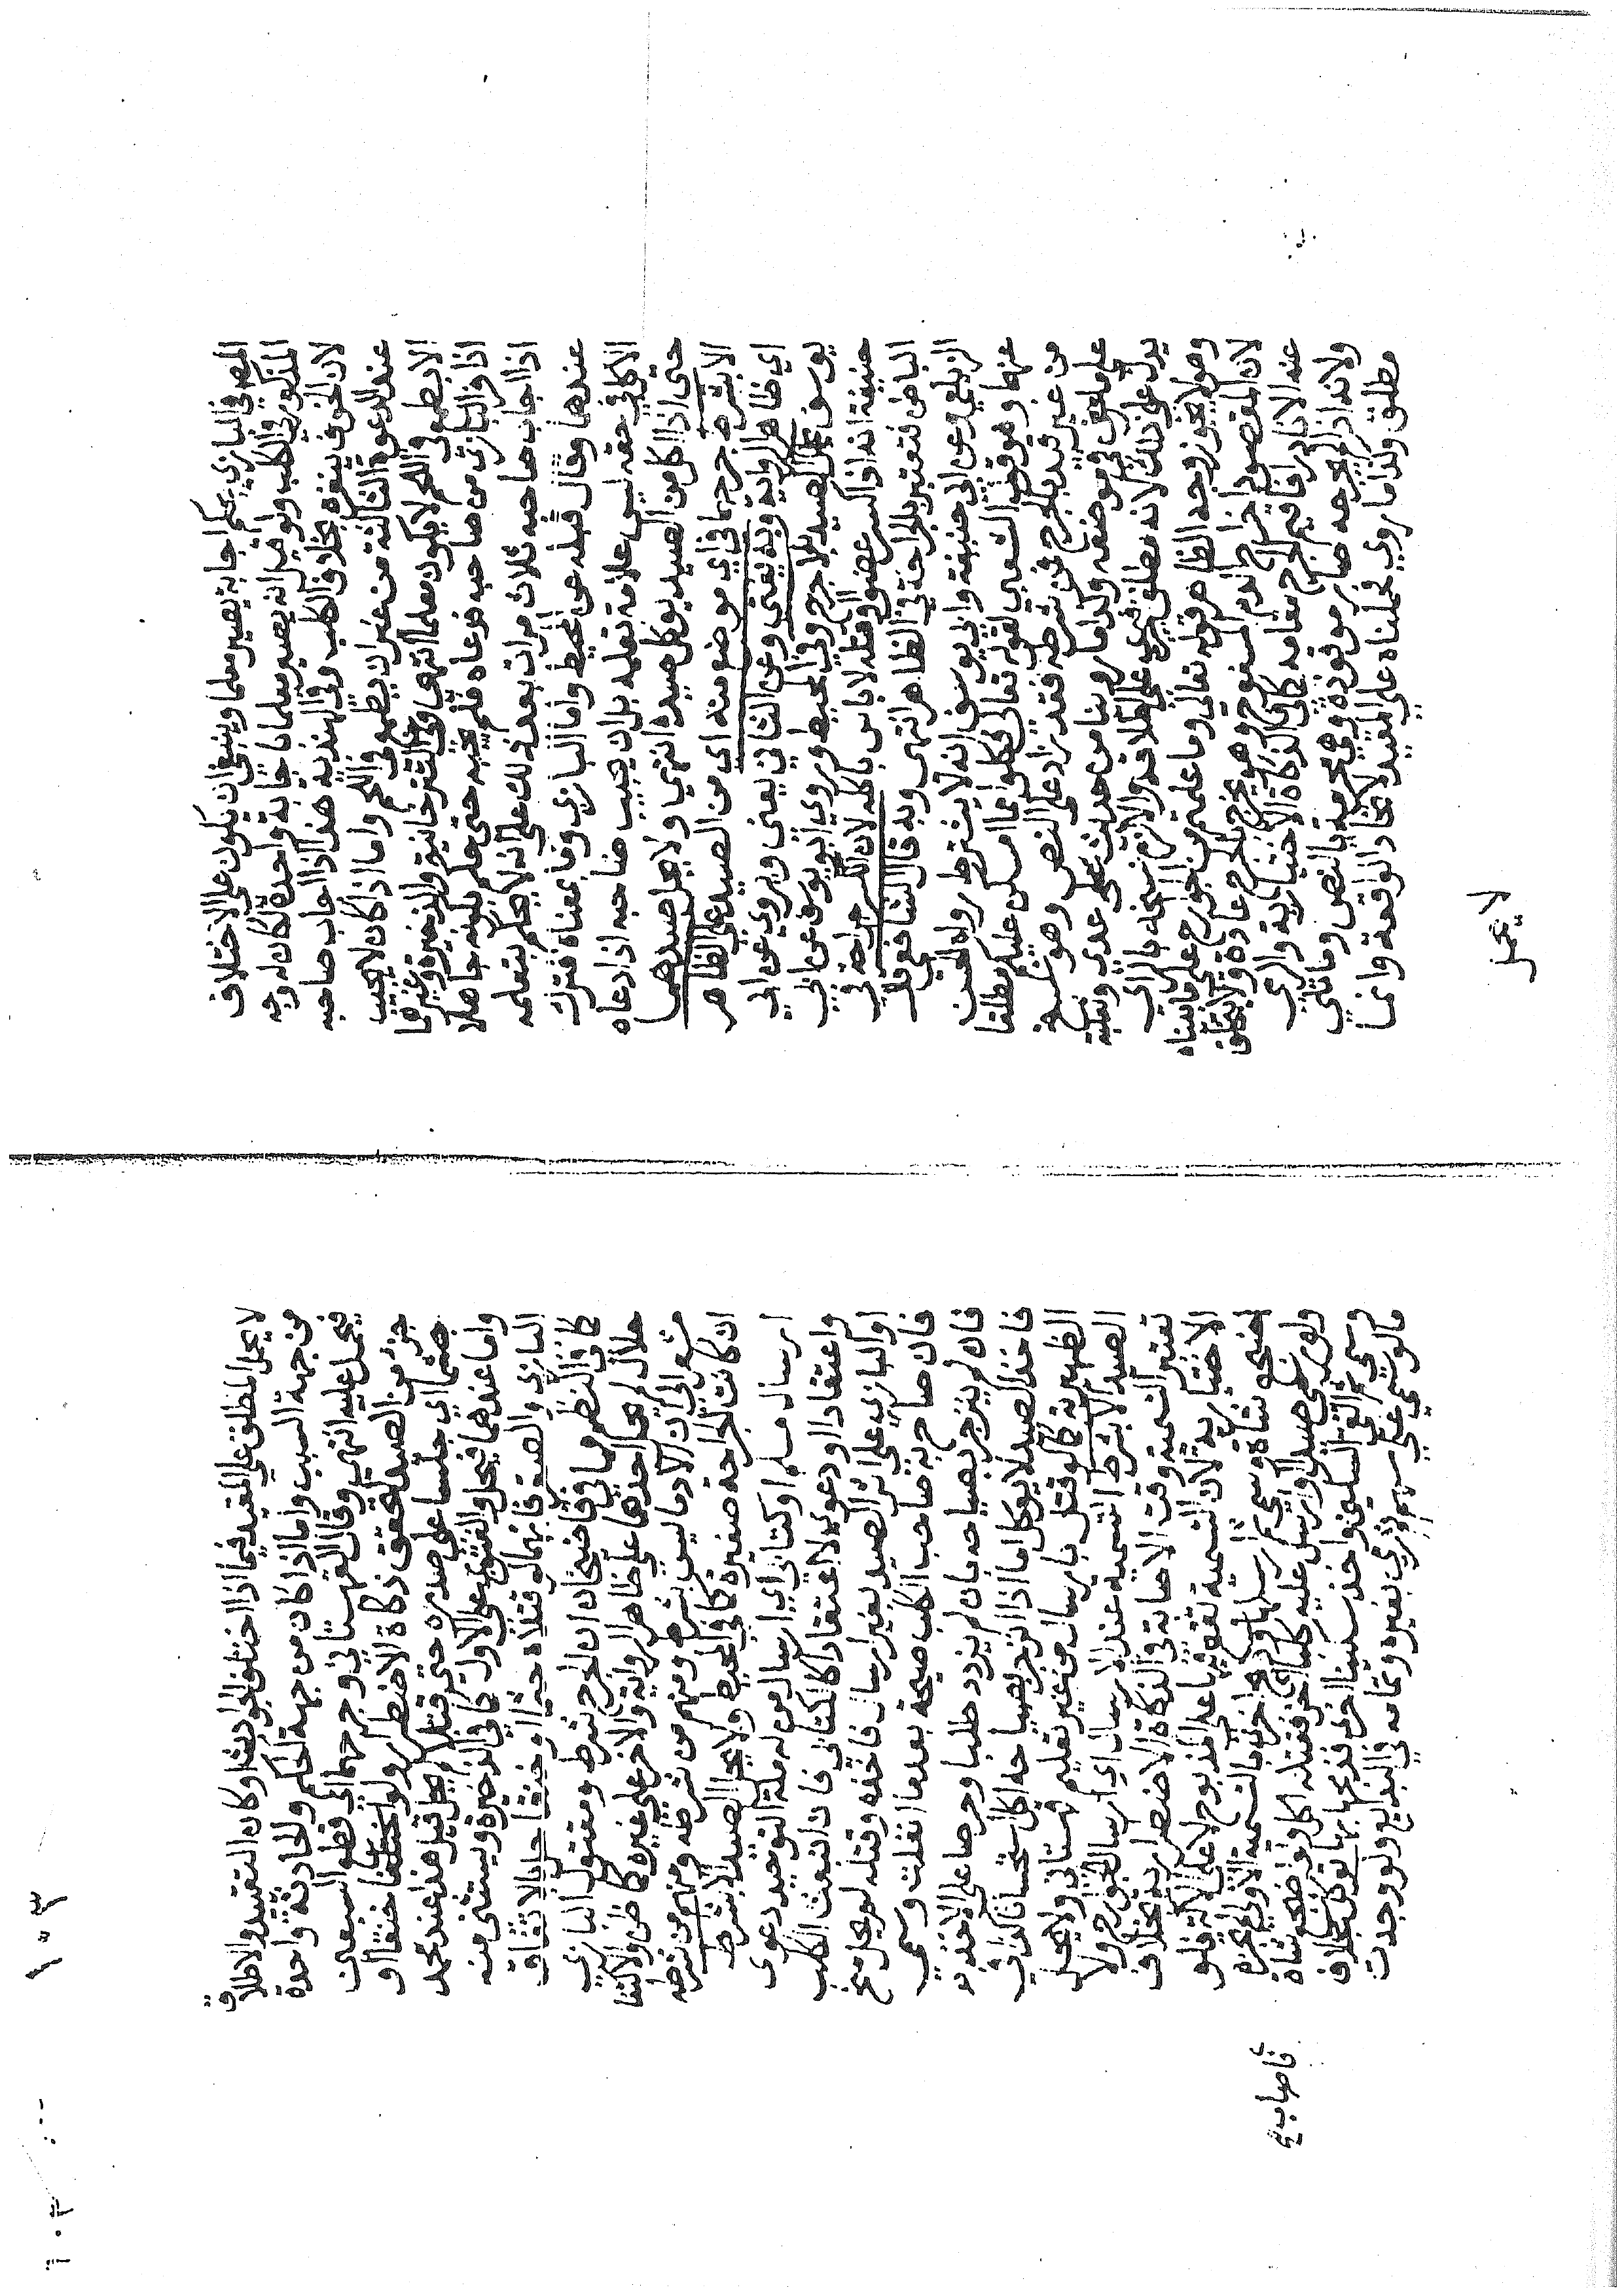 المصر في البازي بحكم اجابة يصير معلما وينبغي ان يكون على الاختلاف
المذكور في الكلب ولو قيل انه يصير معلما باجابة واحدة كان له وجه
لان الخوف ينفره بخلاف الكلب وفي الهندية هذا اذا اجاب صاحبه
عند الدعوة الثالثة من غير ان يطمع في اللحم واما اذا كان لا يجيب
الا بطمع في اللحم لا يكون معلما انتهى وفي التترخانية والذخيرة وغيرهما
اذا فر البازي من صاحبه فدعاه فلم يجبه حتى حكم بكونه جاهلا
اذا اجاب صاحبه ثلاث مرات بعد ذلك على يحكم بتعلمه
عندهما وقال قبله عن المحيط واما البازي وما بمعناه فترك
الاكل في حقه ليس علامة تعلمه بل ان يجيب صاحبه اذا دعاه
حتى اذا اكل من الصيد يوكل صيده انتهى ولا يحل صيدهما
الا بشرط جرحهما في اي موضع منه اي من الصيد على الظاهر
اي ظاهر الرواية وبه يفتى وعن الثاني يعني ويروى عن ابي
يوسف يحل الصيد بلا جرح وفي المحيط وروى ابو يوسف عن ابي
حنيفة انه اذا كسر عضوا فقتله لا باس باكله لان الكسر جراحة في
الباطن فتعتبر بالجراحة في الظاهر انتهى وبه قال الشافعي قال
الزيلعي وعن ابي حنيفة وابي يوسف انه لا يشترط رواه الحسن
عنهما وهو قول الشعبي لقوله تعالى فكلوا مما امسكن عليكم مطلقا
من غير قيد بالجرح فمن شرطه فقد زاد على النص وهو نسخ
على ما عرف في موضعه وكذا ما روينا من حديث عدي وثعلبة
يدل على ذلك لانه مطلق فيجري على اطلاقه والا لزم نسخه بالراي
وهو لا يجوز وجه الظاهر قوله تعالى وما علمتم من الجوارح على ما بيناه
لان المقصود اخراج الدم المسفوح وهو يخرج بالجرح عادة ولا يتخلف
عنه الا نادرا فاقيم الجرح مقامه كما في الذكاة الاختيارية والرمي
ولانه اذا لم يجرحه صار موقوذة وهي محرمة بالنص وما تلي
مطلق وكذا ما روي فحملناه على المقيد لاتحاد الواقعة وانما
لا يحمل
لا يحمل المطلق على المقيد فيما اذا اختلف الحوادث او كان التقييد والاطلاق
من جهة السبب واما اذا كان من جهة الحكم والحادثة واحدة
فيحمل عليه انتهى وقال القهستاني وجرحهما الى
جزء من الصيد لتحقق ذكاة الاضطرار ولو خنقا او
جثما اي جلسا على صدره حتى قتله لم يحل قيل هذا عند محمد
واما عندهما فيحل والفتوى على الاول كما في الذخيرة ويستثنى منه
البازي والصقر فانهما لو قتلاه جثما او خنقا حل بالاتفاق
كما في النظم وما في قاضيخان ان الجرح شرط ومقتول البازي
حلال لم يحمل احدهما على ظاهر الرواية والاخر على غيره كما ظن والاكتفا
مشعر الى ان الادما ليس بشرط ومنهم من شرطه ومنهم من شرطه
ان كانت الجراحة صغيرة كما في المحيط ولا يحل الصيد الا بشرط
ارسال مسلم او كتابي اي ارسال من له ملة التوحيد دعوى
واعتقادا او دعوى لا اعتقادا كالكتابي فان انبعث الكلب
او البازي على اثر الصيد بغير ارسال فاخذه وقتله لم يحل منح
فان صاح به صاحب الكلب صيحة بعدما انفلت وسمى
فان لم ينزجر بصياحه بان لم يزدد طلبا وحرصا على الاخذ به
فاخذ الصيد لا يوكل اما اذا انزجر بصياحه اكل استحسانا كذا في
الظهيرية كما لو قتل بارسال من غير تعليم قهستاني ولا يحل
الصيد الا بشرط التسمية عند الارسال اي ارسال الجوارح ولا
تعتبر التسمية وقت الاصابة في الذكاة الاضطرارية بخلاف
الاختيارية لان التسمية تقع فيها على المذبوح لا على الالة فلو
اضجع شاة وسمى ثم ارسلها وذبح اخرى بالتسمية الاولى لم يجزه
ولو رمى صيدا او ارسل عليه كلبا اخر فقتله اكل ولو اضجع شاة
وسمى ثم القى السكين واخذ سكينا اخرى فذبحها بها توكل بخلاف
ما لو سمى على سهم ثم رمى بغيره وتمامه في البدايع ولو وجدت
فاصاب صح
١٠٣